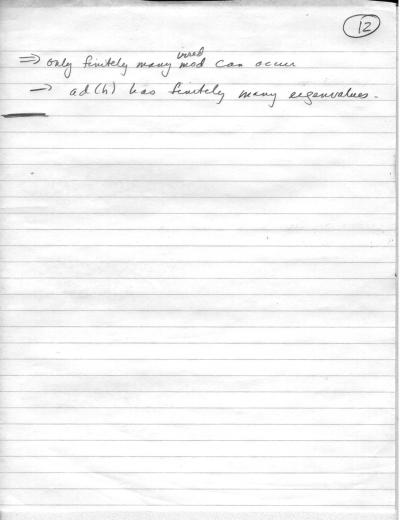 12
⇒ only finitely many irred mod can occur
→ ad(h) has finitely many eigenvalues.